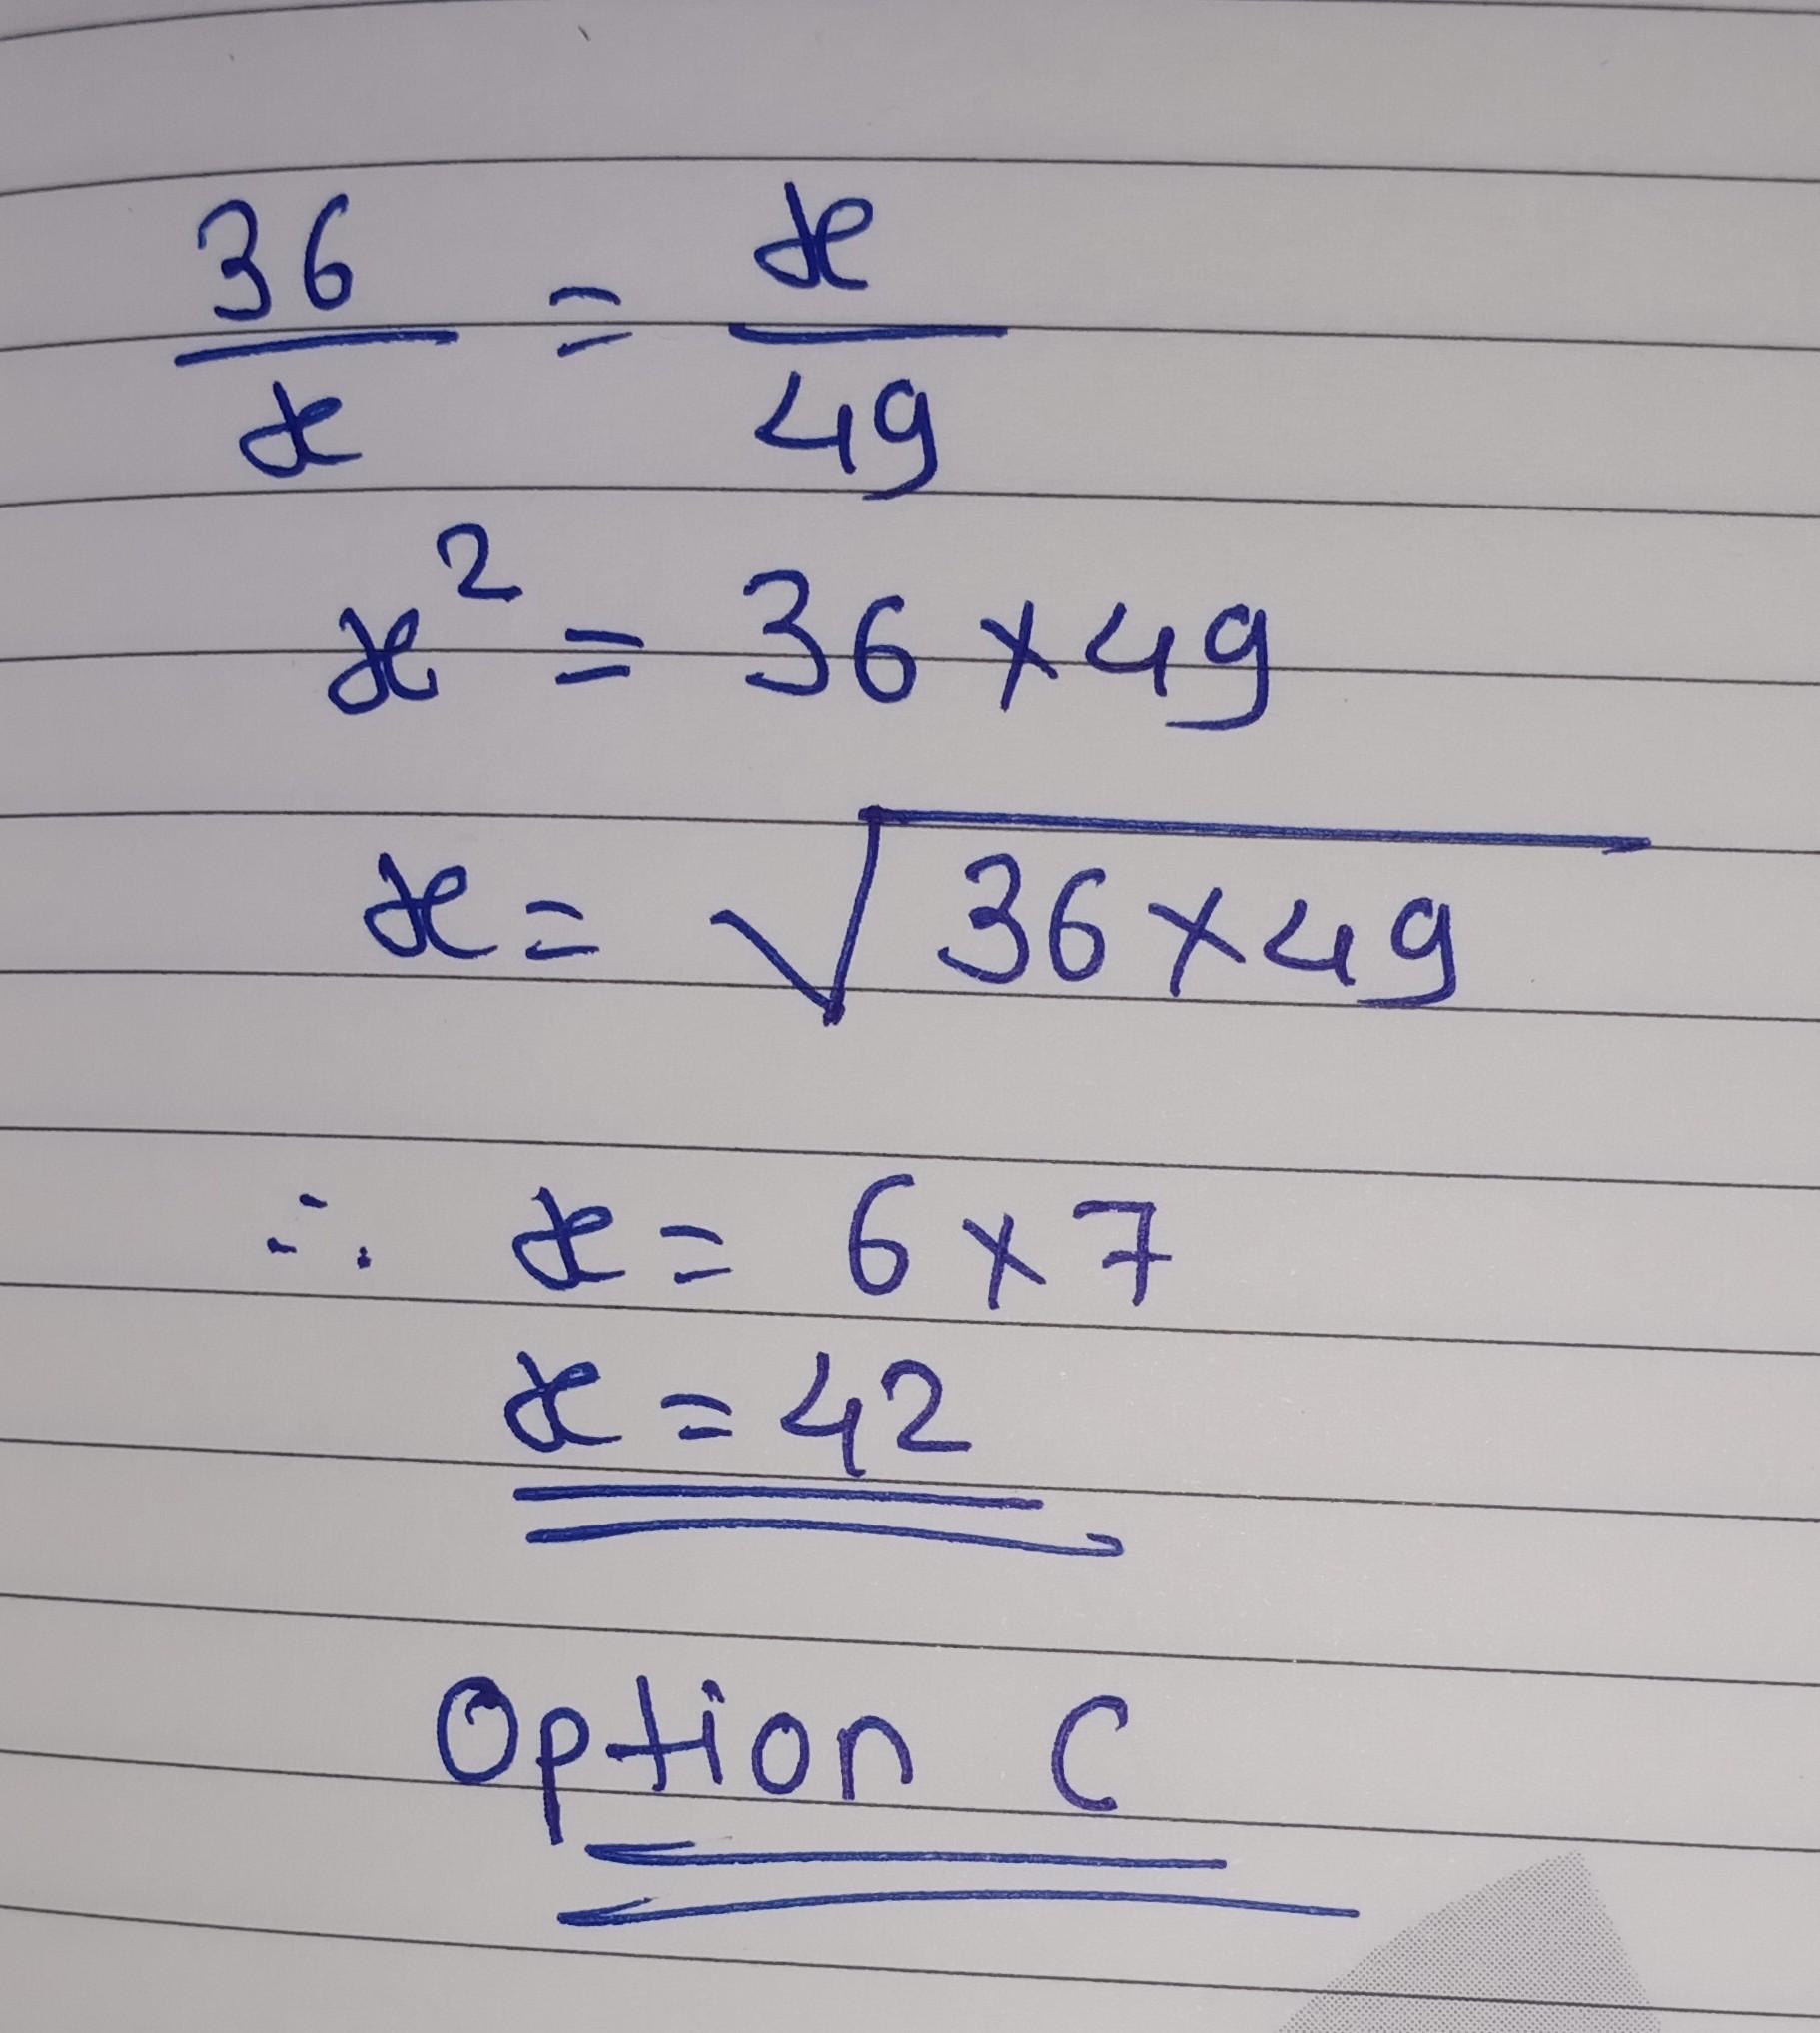 36/x = x/49
x² = 36 × 49
x = √36 × 49
∴ x = 6 × 7
x = 42
Option C